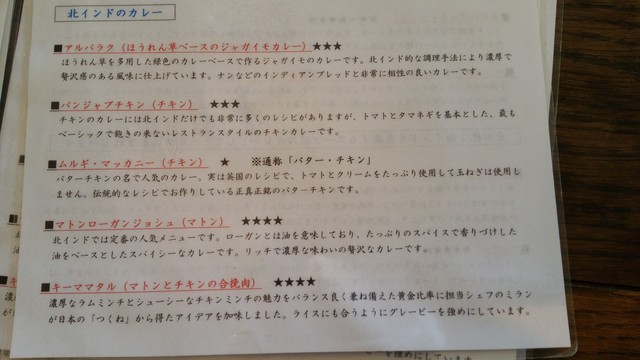 北インドのカレー
■アルバラク（ほうれん草ベースのジャガイモカレー）★★★
ほうれん草を多用した緑色のカレーベースで作るジャガイモのカレーです。北インド的な調理手法により濃厚で
贅沢感のある風味に仕上げています。ナンなどのインディアンブレッドと非常に相性の良いカレーです。
■パンジャブチキン（チキン） ★★★
チキンのカレーには北インドだけでも非常に多くのレシピがありますが、トマトとタマネギを基本とした、最も
ベーシックで飽きの来ないレストランスタイルのチキンカレーです。
■ムルギ・マッカニー（チキン） ★ ※通称「バター・チキン」
バターチキンの名で人気のカレー。実は英国のレシピで、トマトとクリームをたっぷり使用して玉ねぎは使用し
ません。伝統的なレシピでお作りしている正真正銘のバターチキンです。
■マトンローガンジョシュ（マトン） ★★★★
北インドでは定番の人気メニューです。ローガンとは油を意味しており、たっぷりのスパイスで香りづけした
油をベースとしたスパイシーなカレーです。リッチで濃厚な味わいの贅沢なカレーです。
■キーママタル（マトンとチキンの合挽肉） ★★★★
濃厚なラムミンチとシューシーなチキンミンチの魅力をバランス良く兼ね備えた黄金比率に担当シェフのミラン
が日本の「つくね」から得たアイデアを加味しました。ライスにも合うようにグレービーを強めにしています。